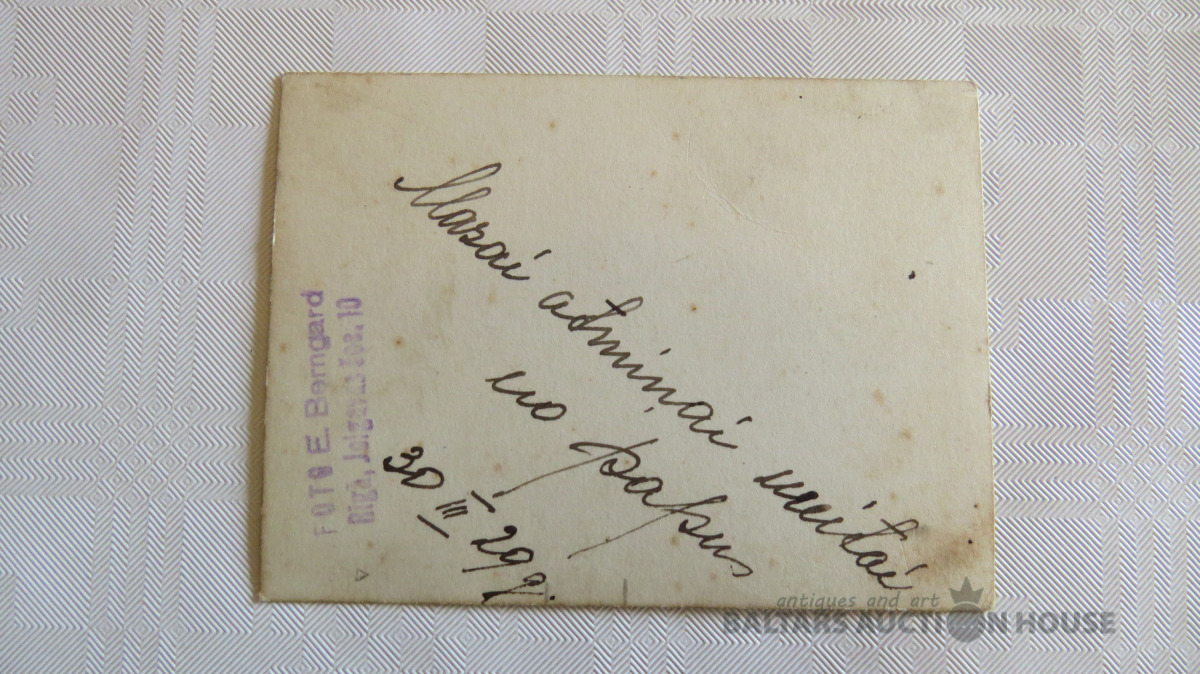 Mazai atmiņai meitai
no papus
30 III 29 g.
FOTO E. Berngard
Rīgā, Jelgavas šos. 10
antiques and art
BALTARS AUCTION HOUSE